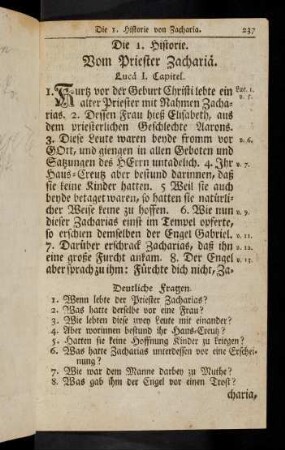 Die 1. Historie von Zacharia. 237
Die 1. Historie.
Vom Priester Zachariä.
Lucä I. Capitel.
1. Kurtz vor der Geburt Christi lebte ein Luc. 1. v. 5.
alter Priester mit Nahmen Zacha-
rias. 2. Dessen Frau hieß Elisabeth, aus
dem priesterlichen Geschlechte Aarons.
3. Diese Leute waren beyde fromm vor v. 6.
GOtt, und giengen in allen Geboten und
Satzungen des HErrn untadelich. 4. Ihr v. 7.
Haus-Creutz aber bestund darinnen, daß
sie keine Kinder hatten. 5 Weil sie auch
beyde betaget waren, so hatten sie natürli-
cher Weise keine zu hoffen. 6. Wie nun v. 9.
dieser Zacharias einst im Tempel opferte,
so erschien demselben der Engel Gabriel. v. 11.
7. Darüber erschrack Zacharias, daß ihn v. 12.
eine große Furcht ankam. 8. Der Engel v. 13.
aber sprach zu ihm: Fürchte dich nicht, Za-
Deutliche Fragen.
1. Wenn lebte der Priester Zacharias?
2. Was hatte derselbe vor eine Frau?
3. Wie lebten diese zwey Leute mit einander?
4. Aber worinnen bestund ihr Haus-Creutz?
5. Hatten sie keine Hoffnung Kinder zu kriegen?
6. Was hatte Zacharias unterdessen vor eine Erschei-
nung?
7. Wie war dem Manne darbey zu Muthe?
8. Was gab ihm der Engel vor einen Trost?
charia,